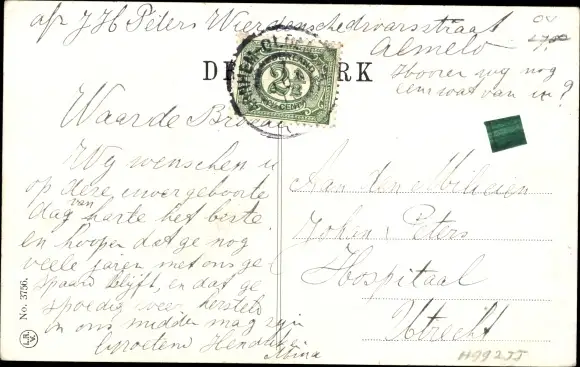 afz J H Peters Wierdenschedwarsstraat
Almelo
Hooren wy nog
eens wat van u?
DE RK
ARNHEM-OLD
2½
CENT
Waarde Broeder
Wy wenschen u
op deze uwe geboorte
dag van harte het beste
en hoopen dat ge nog
veele jaren met ons ge
spaard blijft, en dat ge
spoedig weer hersteld
in ons midden mag zyn
Groetend Hendrik
Mina
Aan den Milicien
Johan Peters
Hospitaal
Utrecht
No. 3756.
H992JJ